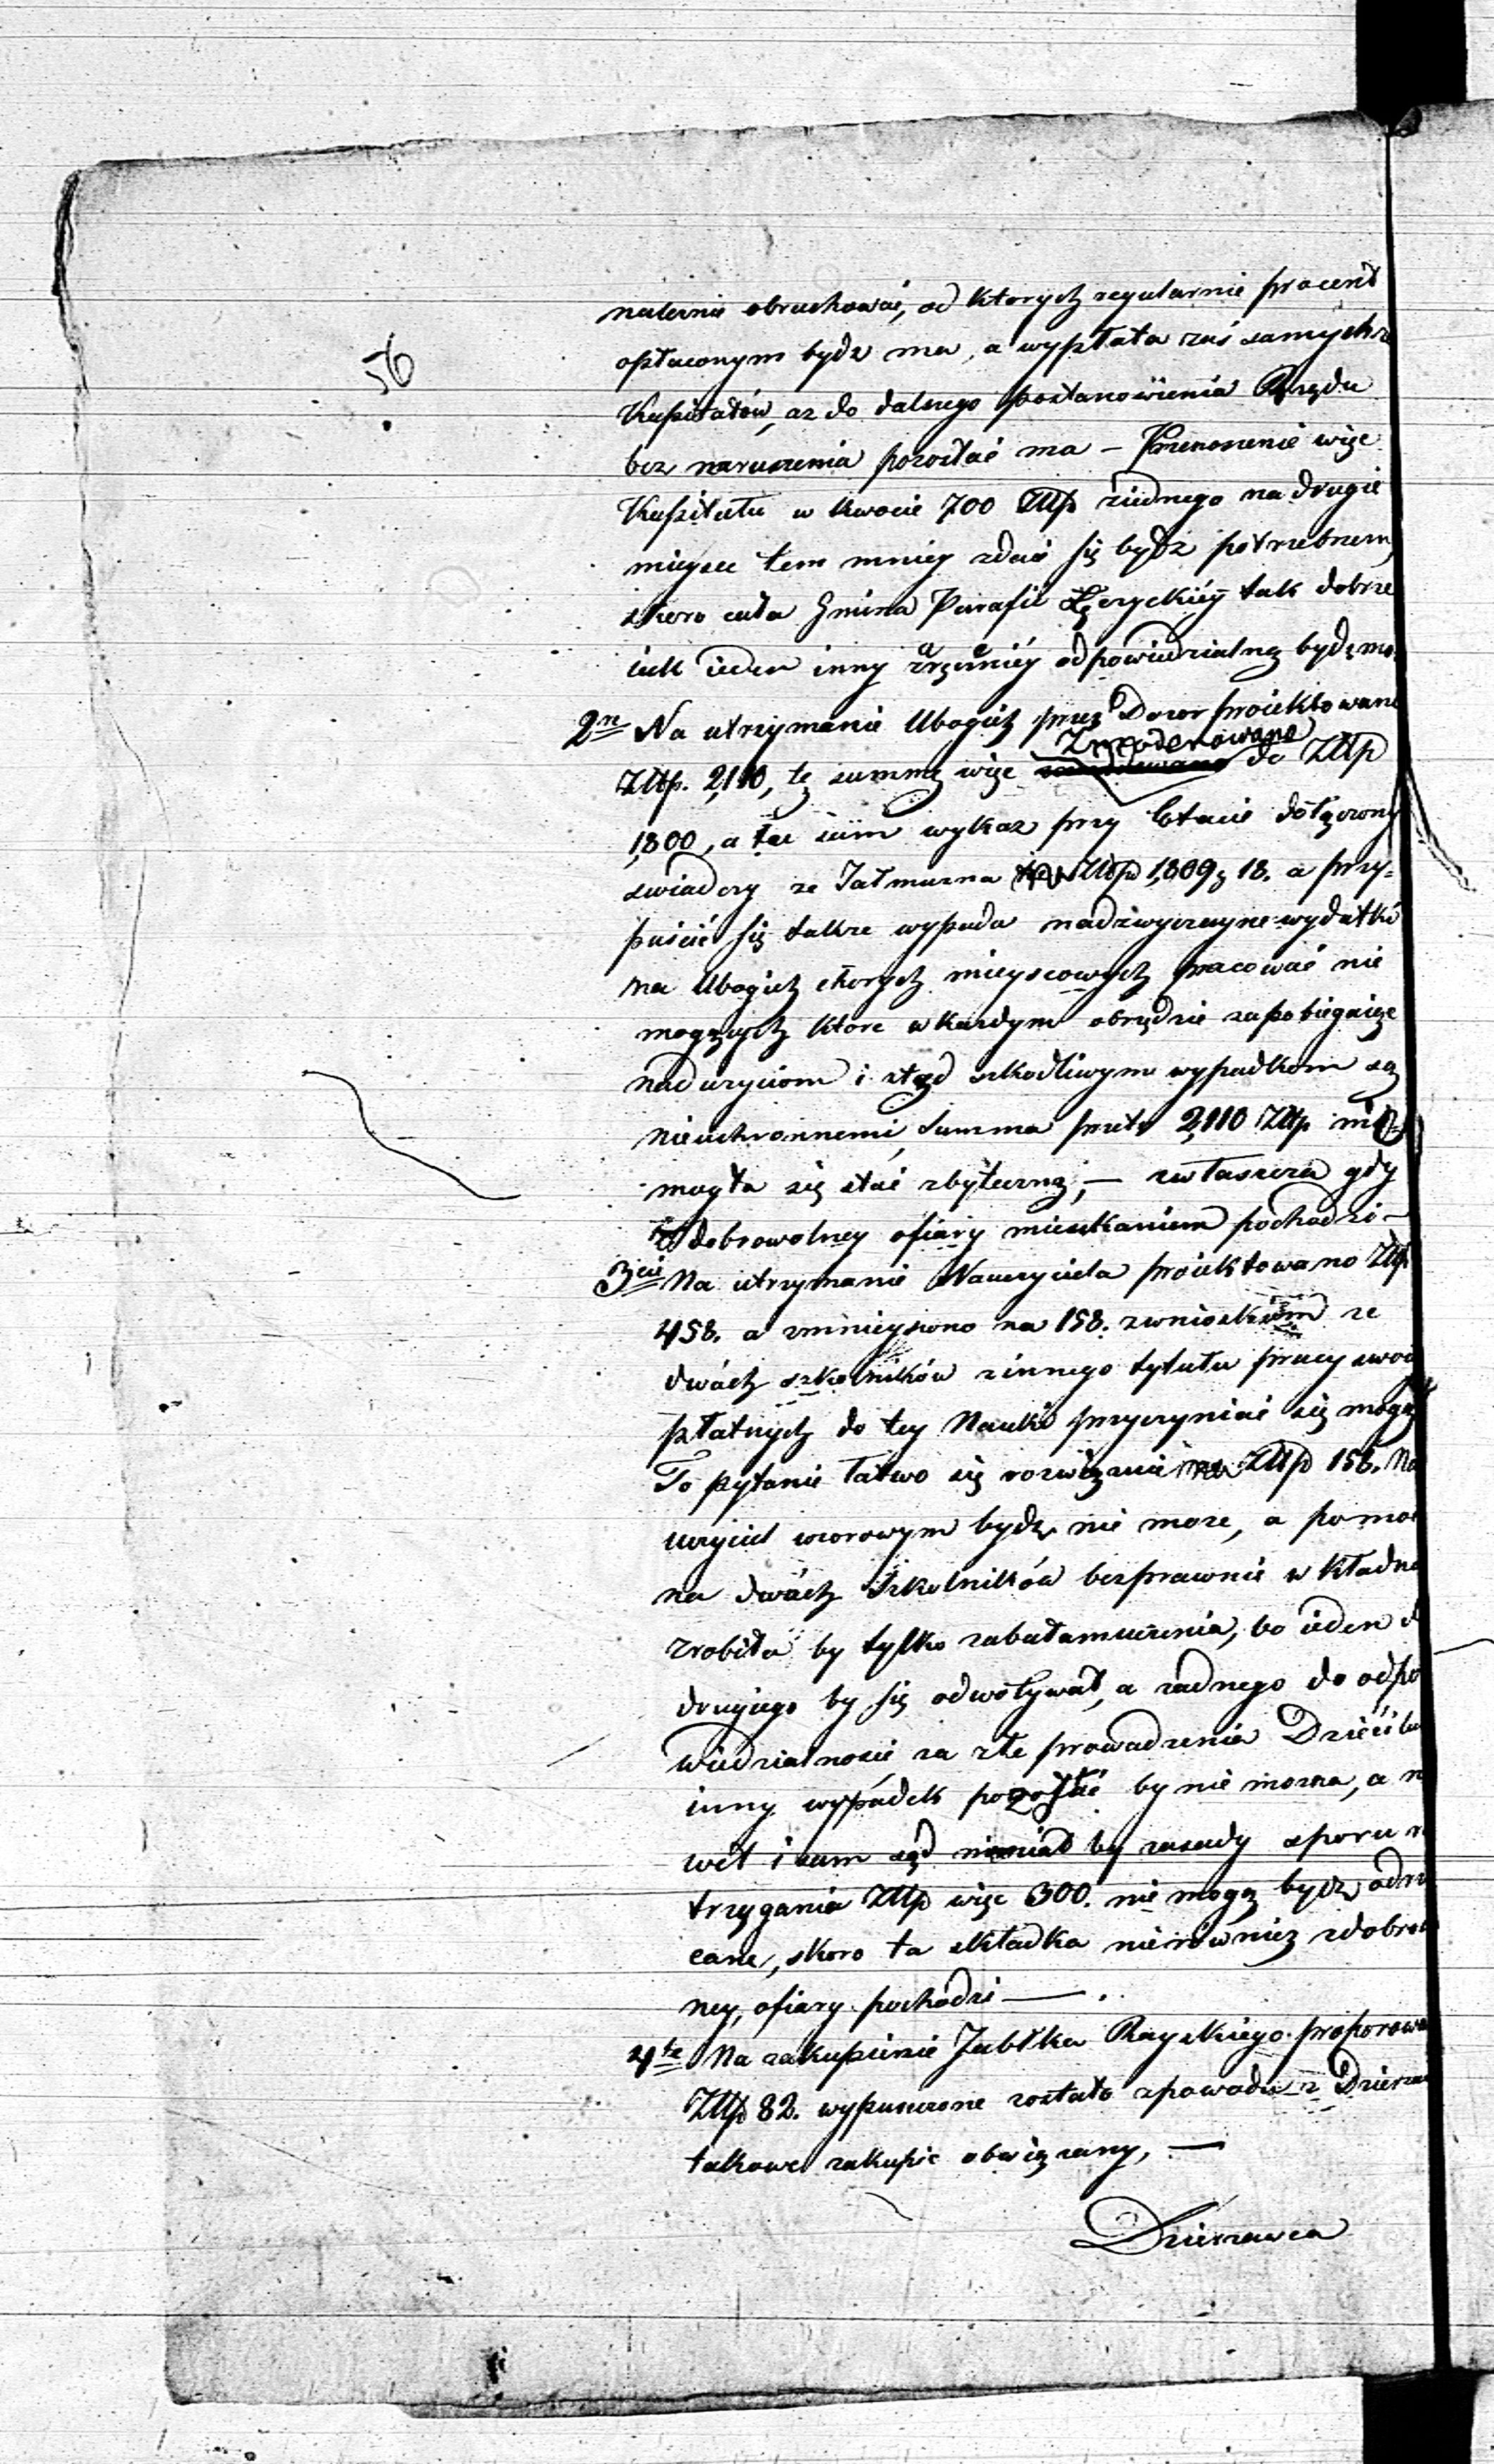 56
nalernie obrachować, od ktorych regularnie procent
opłaconym bydź ma, a wypłata zaś samychże
Kapitałów, az do dalszego postanowienia Rządu
bez naruszenia pozostać ma – Przenoszenie więc
Kapitału w kwocie 700 Złtp ziednego na drugie
mieysce tem mniey zdaie się bydź potrzebnem,
skoro cała Gmina Parafii Łęczyckiéy tak dobrze
iak ieden inny odpowiedzialną bydź mo
2re Na utrzymanie Ubogich przez Dozor proiektowano
Złtp. 2,110, tę summę więc Zmoderowano do Złtp
1,800, a tu sam wykaz przy Etacie dołączony
swiadczy ze Jałmuzna Złtp 1,809 g 18. a przy=
puścić się takze wypada nadzwyczayne wydatki
na Ubogich chorych mieyscowych pracować nie
mogących ktore w kazdym obrzędzie zapobiegaiąc
naduzyciom i ztąd szkodliwym wypadkom są
nieuchronnemi, Summa przeto 2,110 Złtp nie
mogła się stać zbyteczną, — zwłaszcza gdy
z dobrowolney ofiary mieszkaniem pochodzi –
3cie Na utrzymanie Nauczyciela proiektowano Złtp
458. a zmnieyszono na 158. zwnioskiem ze
dwóch szkolników zinnego tytułu pracy swoi
płatnych do tey Nauki przyczyniać się mogą
To pytanie łatwo się rozwiązuie na Złtp 158. Na
uczyciel wzorowym bydź nie moze, a pomoc
na dwóch Szkolników bezprawnie wkładna
zrobiła by tylko zabałamucenia, bo ieden d
drugiego by się odwoływał, a zadnego do odpo
wiedzialnosci za złe prowadzenia Dzieci lu
inny wypadek pozostać by nie mozna, a n
wet i sam sąd niemiał by zasady sporu r
trzygania Złtp więc 300. nie mogą bydź odrzu
cane, skoro ta składka nierównież zdobrowo
ney, ofiary pochodzi —.
4te Na zakupienie Jabłka Rayskiego proporowa
Złtp 82. wypuszczone zostało zpowodu z Dzierza
takowe zakupić obwiązany, —
Dzierzawca